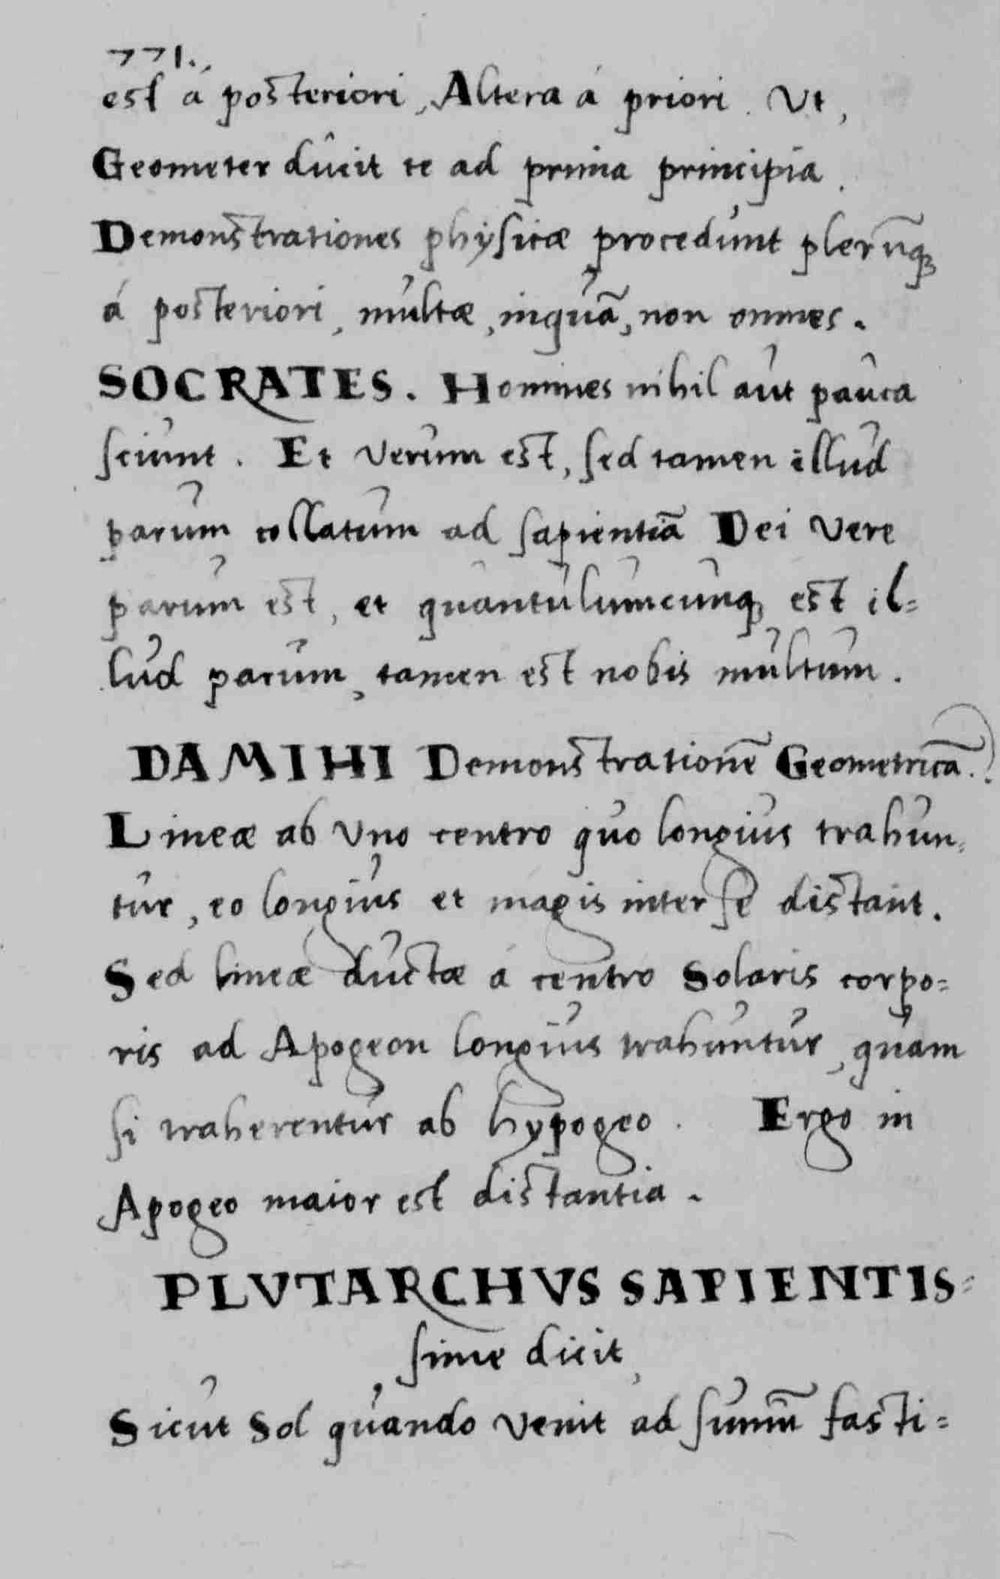 771.
est à posteriori, Altera á priori. Ut,
Geometer ducit te ad prima principia.
Demonstrationes physicæ procedunt plerunq́;
á posteriori, multæ, inquā, non omnes.
SOCRATES. Homines nihil aut pauca
sciunt. Et verum est, sed tamen illud
parum collatum ad sapientiā Dei vere
parum est, et quantulumcunq; est il=
lud parum, tamen est nobis multum.
DA MIHI Demonstrationē Geometricā.
Lineæ ab uno centro quo longius trahun=
tur, eo longius et magis inter se distant.
Sed lineæ ductæ á centro Solaris corpo=
ris ad Apogeon longius trahuntur, quam
si traherentur ab hypogeo. Ergo in
Apogeo maior est distantia.
PLVTARCHVS SAPIENTIS=
sime dicit,
Sicut Sol quando venit ad sum̄ū fasti=